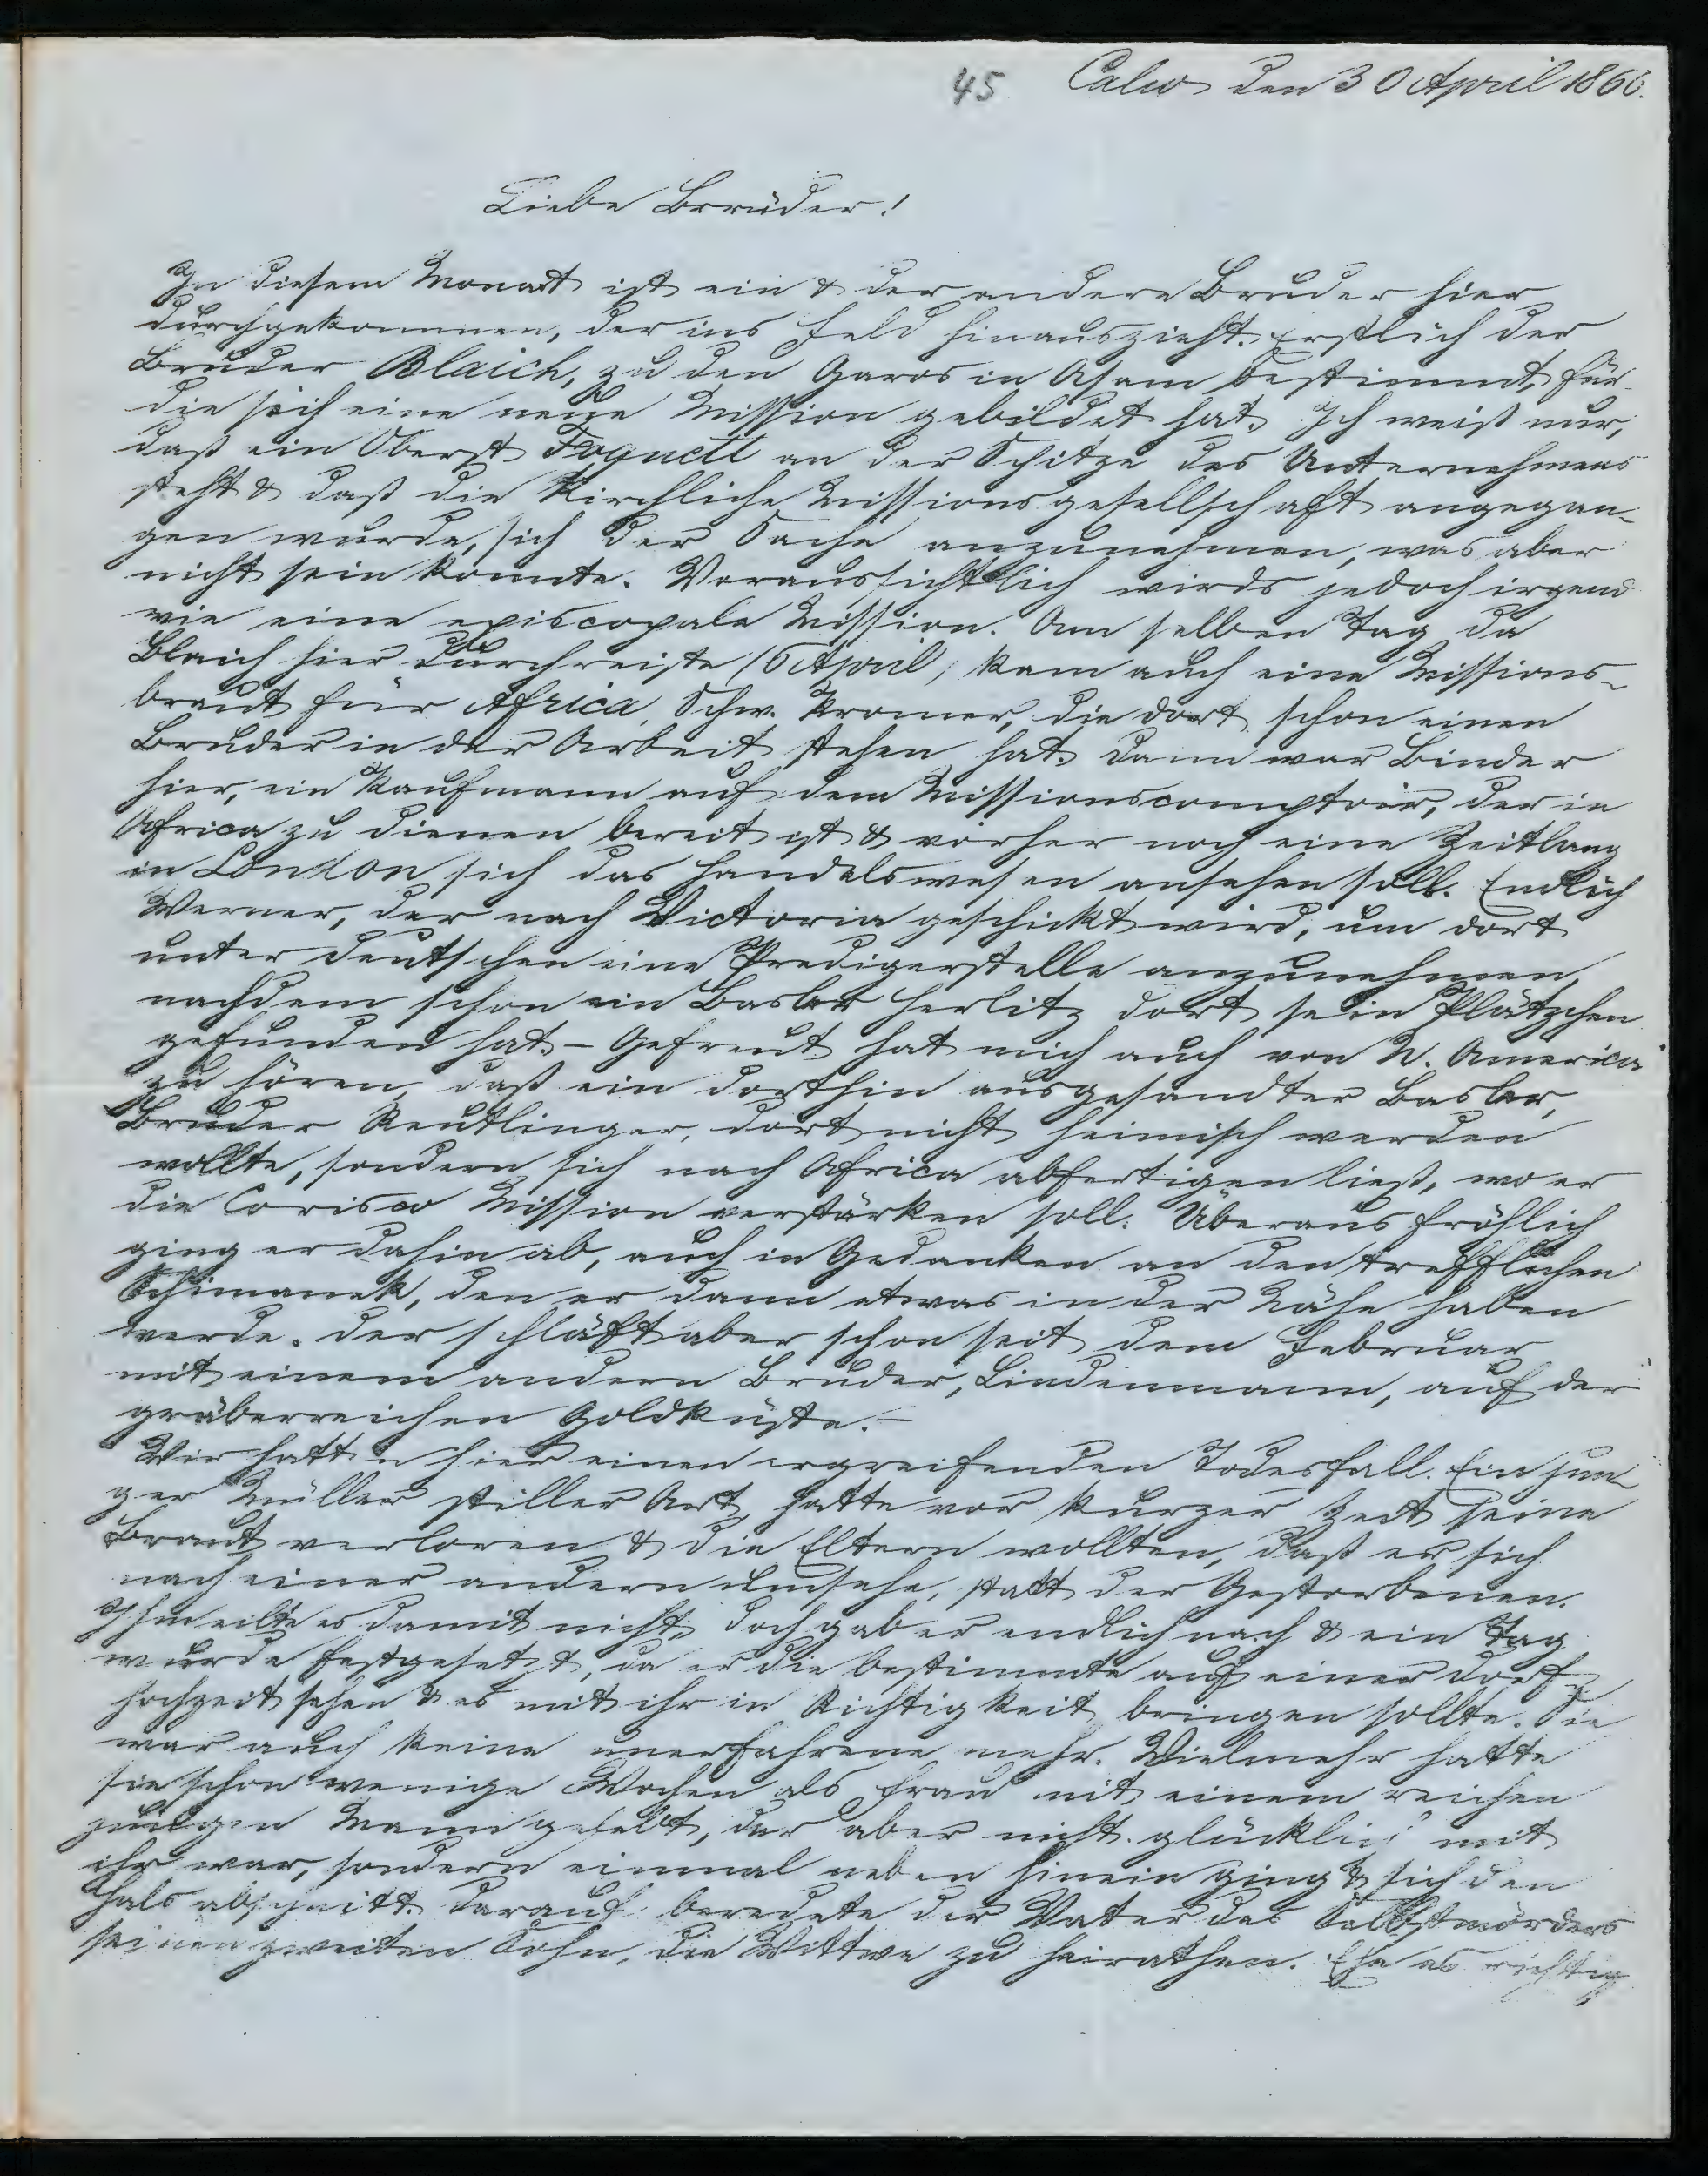 45 Calw den 30 April 1866.
Liebe Brüder!
In diesem Monat ist ein & der andere Bruder hier
durchgekommen, der ins Feld hinauszieht. Erstlich der
Bruder Blaich, zu den Garos in Asam bestimmt, für
die sich eine neue Mission gebildet hat. Ich weiß nur,
daß ein Oberst an der Spitze des Unternehmens
steht & daß die Kirchliche Missionsgesellschaft angegan-
gen wurde, sich der Sache anzunehmen, was aber
nicht sein konnte. Voraussichtlich wirds jedoch irgend
wie eine episcopale Mission. Am selben Tag da
Blaich hier durchreiste (6 April, kam auch eine Missions-
braut für Africa, Schw. Kromer, die dort schon einen
Bruder in der Arbeit stehen hat. Dann war Binder
hier, ein Kaufmann auf dem Missionscomptoir, der in
Africa zu dienen bereit ist & vorher noch eine Zeitlang
in London sich das Handelswesen ansehen soll. Endlich
Werner, der nach Victoria geschickt wird, um dort
unter Deutschen eine Predigerstelle anzunehmen,
nachdem schon ein Basler Herlitz dort sein Plätzchen
gefunden hat. - Gefreut hat mich auch von N. America
zu hören, daß ein dorthin ausgesandter Basler,
Bruder Reutlinger, dort nicht heimisch werden
wollte, sondern sich nach Africa abfertigen ließ, wo er
die Corisco Mission verstärken soll. Überaus fröhlich
ging er dahin ab, auch in Gedanken an den trefflichen
Schimanek, den er dann etwas in der Nähe haben
werde. Der schläft aber schon seit dem Februar
mit einem andern Bruder, Lindenmann, auf der
gräberreichen Goldküste. -
Wir hatten hier einen ergreifenden Todesfall. Ein jun-
ger Müller stiller Art, hatte vor kurzer Zeit seine
Braut verloren & die Eltern wollten, daß er sich
nach einer andern umsehe, statt der Gestorbenen.
Ihm eilte es damit nicht, doch gab er endlich nach & ein Tag
wurde festgesetzt, da er die bestimmte auf einer Dorf-
hochzeit sehen & es mit ihr in Richtigkeit bringen sollte. Sie
war auch keine unerfahrene mehr. Vielmehr hatte
sie schon wenige Wochen als Frau mit einem reichen
jungen Mann gelebt, der aber nicht glücklich mit
ihr war, sondern einmal neben hinein ging & sich den
Hals abschnitt. Darauf beredete der Vater des Selbstmörders
seinen zweiten Sohn, die Wittwe zu heirathen. Ehe es richtig